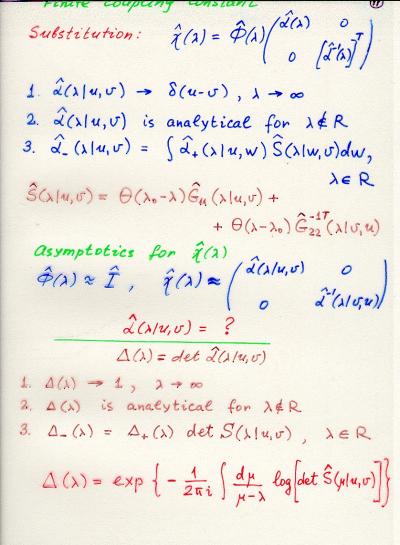 Finite coupling constant
11
Substitution: χ̂(λ) = Φ̂(λ) ( α̂(λ) 0
0 [α̂⁻¹(λ)]ᵀ )
1. α̂(λ|u,v) → δ(u-v), λ → ∞
2. α̂(λ|u,v) is analytical for λ∉R
3. α̂₋(λ|u,v) = ∫ α̂₊(λ|u,w) Ŝ(λ|w,v)dw,
λ∈R
Ŝ(λ|u,v) = Θ(λ₀-λ)Ĝ₁₁(λ|u,v) +
+ Θ(λ-λ₀) Ĝ₂₂⁻¹ᵀ(λ|v,u)
Asymptotics for χ̂(λ)
Φ̂(λ) ≈ Î, χ̂(λ) ≈ ( α̂(λ|u,v) 0
0 α̂⁻¹(λ|v,u) )
α̂(λ|u,v) = ?
Δ(λ) = det α̂(λ|u,v)
1. Δ(λ) → 1, λ → ∞
2. Δ(λ) is analytical for λ∉R
3. Δ₋(λ) = Δ₊(λ) det S(λ|u,v), λ∈R
Δ(λ) = exp { - 1/2πi ∫ dμ/μ-λ log[det Ŝ(μ|u,v)] }